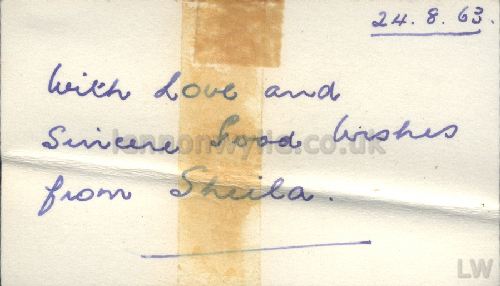 24.8.63.
With Love and
Sincere Good Wishes
from Sheila.
lennonwylie.co.uk
LW